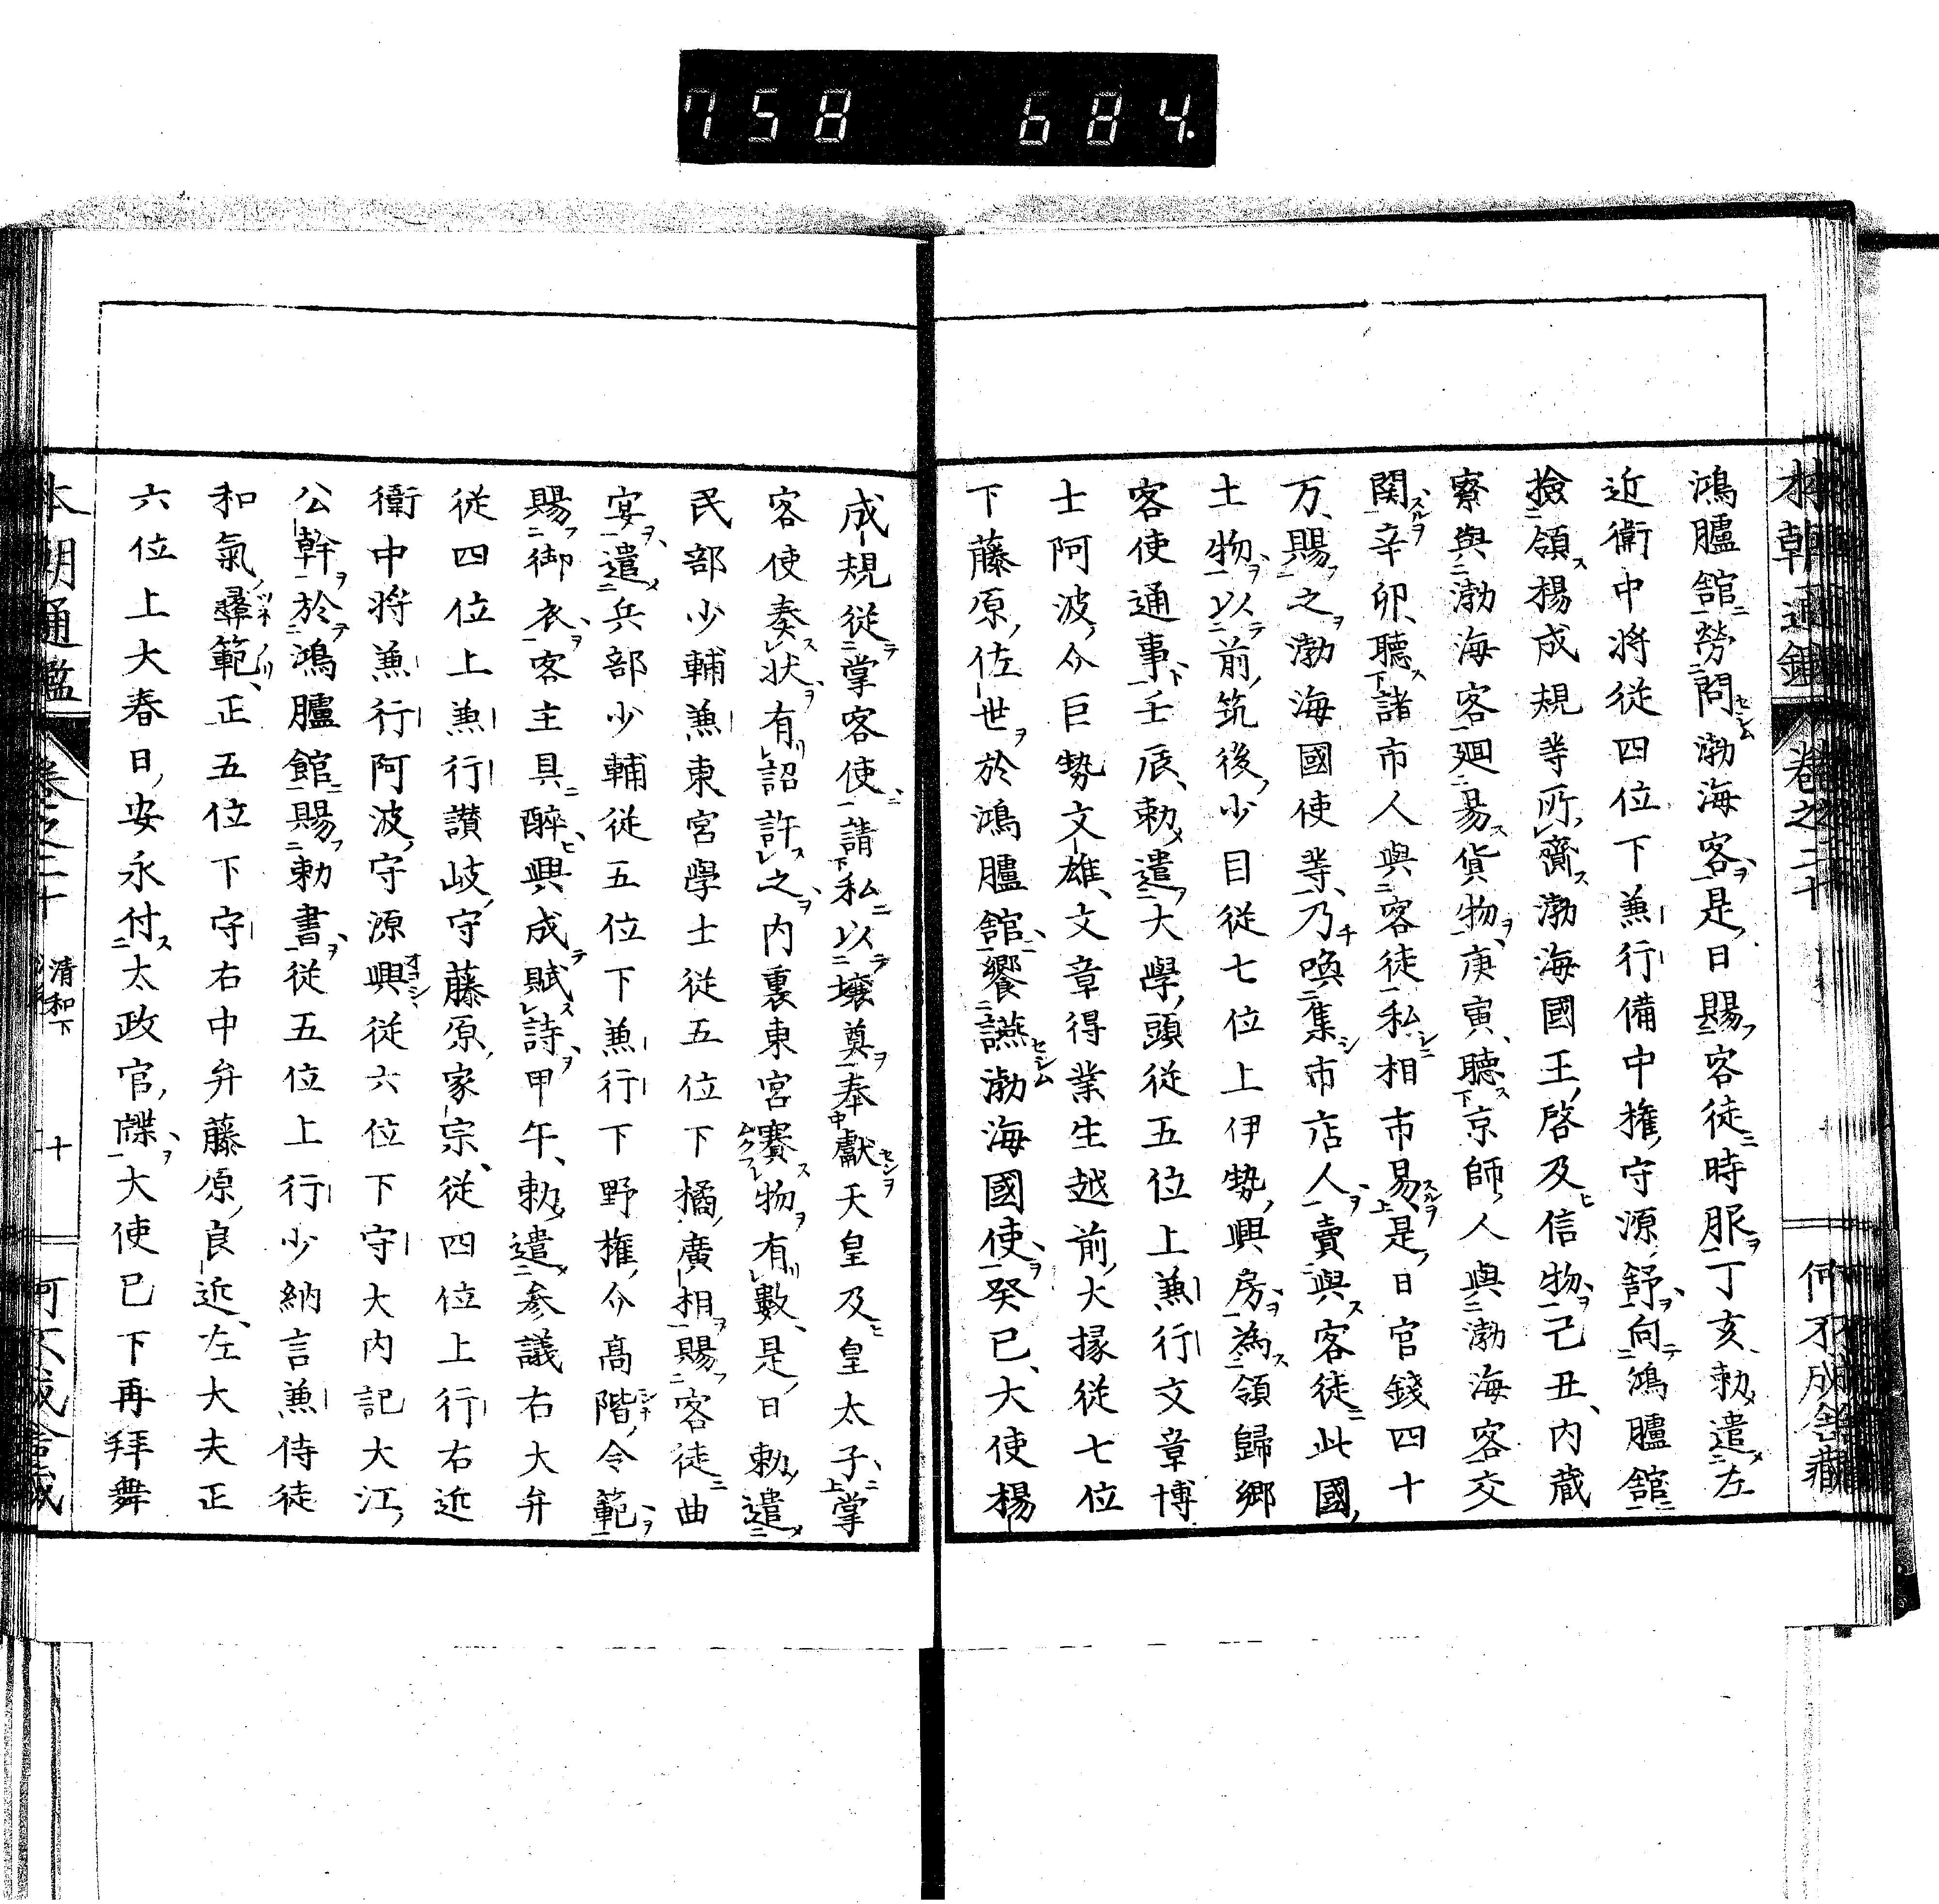 758 684.
鴻臚舘勞問渤海客是日賜客徒時服丁亥勅遣左
近衛中将従四位下兼行備中権守源舒向鴻臚舘
撿領楊成規等所齎渤海國王啓及信物己丑内蔵
寮與渤海客廻易貨物庚寅聽京師人與渤海客交
関辛卯聽諸市人與客徒私相市易是日官錢四十
万賜之渤海國使等乃喚集市店人賣與客徒此國
土物以前筑後少目従七位上伊勢興房為領歸郷
客使通事壬辰勅遣大學頭従五位上兼行文章博
士阿波介巨勢文雄文章得業生越前大掾従七位
下藤原佐世於鴻臚館饗讌渤海國使癸巳大使楊
成規従掌客使請私以壤奠奉獻天皇及皇太子掌
客使奏状有詔許之内裏東宮賽物有數是日勅遣
民部少輔兼東宮學士従五位下橘廣相賜客徒曲
宴遣兵部少輔従五位下兼行下野権介高階令範
賜御衣客主具醉興成賦詩甲午勅遣参議右大弁
従四位上兼行讃岐守藤原家宗従四位上行右近
衛中将兼行阿波守源興従六位下守大内記大江
公幹於鴻臚館賜勅書従五位上行少納言兼侍従
和氣彝範正五位下守右中弁藤原良近左大夫正
六位上大春日安永付太政官牒大使已下再拜舞
本朝通鑑 卷之二十 清和下 十